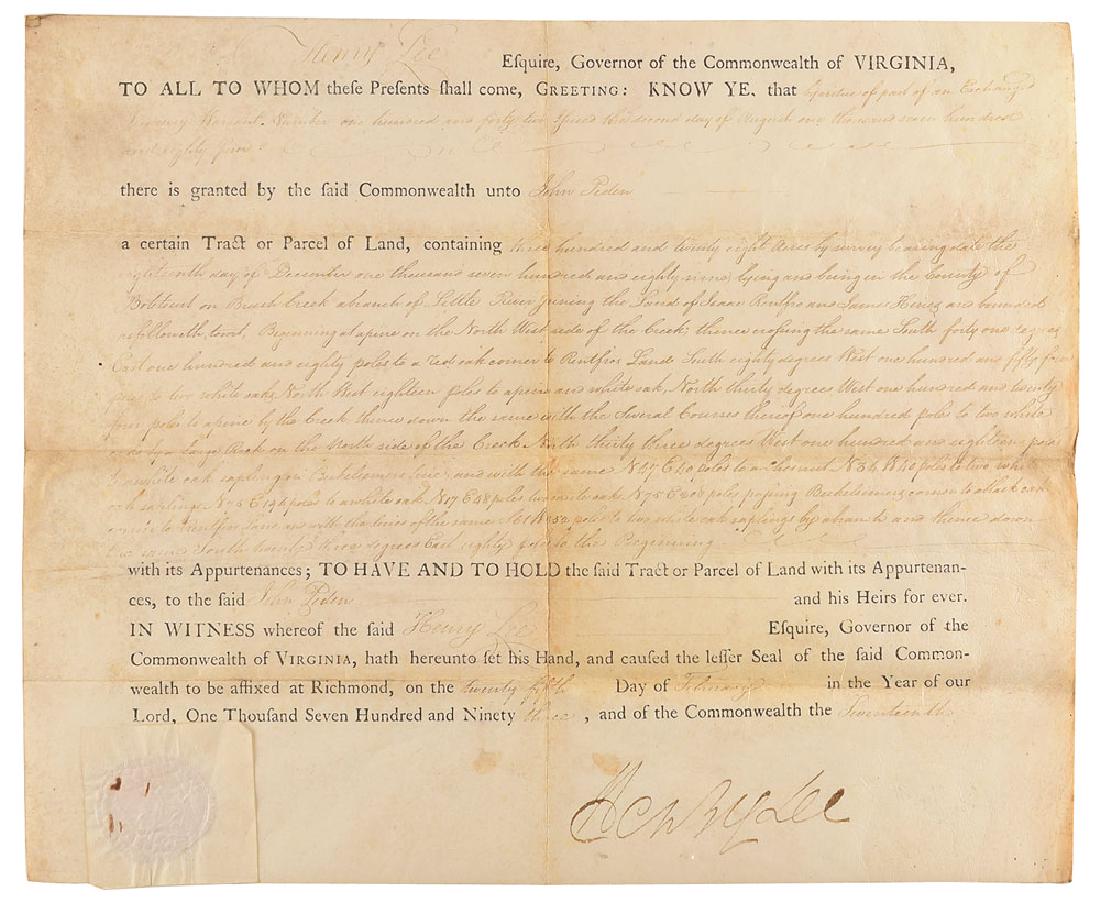 Henry Lee Eſquire, Governor of the Commonwealth of VIRGINIA,
TO ALL TO WHOM theſe Preſents ſhall come, GREETING: KNOW YE, that by virtue of part of an Exchanged
Treasury Warrant Number one hundred and forty two issued the second day of August one thousand seven hundred
and eighty
there is granted by the ſaid Commonwealth unto John Peden
a certain Tract or Parcel of Land, containing three hundred and twenty eight Acres by survey bearing date the
eighteenth day of December one thousand seven hundred and eighty nine lying and being in the County of
Botetourt on Brush Creek a branch of Little River joining the Land of Isaac Rentfro and James and bounded
as followeth, towit, Beginning at a pine on the North West side of the Creek; thence crossing the same South forty one degrees
East one hundred and eighty poles to a red oak corner to Rentfros Land South eighty degrees West one hundred and fifty four
poles to two white oaks North West eighteen poles to a pine and white oak, North thirty degrees West one hundred and twenty
four poles to a pine by the Creek thence down the same with the Several Courses thereof one hundred poles to two white
oaks by a large Rock on the North side of the Creek North thirty three degrees West one hundred and eighteen poles
to a white oak sapling in line and with the same N47 E40 poles to a Chesnut N34 W40 poles to two white
oak saplings N 5 E 146 poles to a white oak N17 E68 poles to white oak N75 E poles passing corner to a black oak
corner to Rentfros Land and with the lines of the same poles to two white oak saplings by a branch and thence down
the same South twenty three degrees East eighty poles to the Beginning
with its Appurtenances; TO HAVE AND TO HOLD the ſaid Tract or Parcel of Land with its Appurtenan-
ces, to the ſaid John Peden and his Heirs for ever.
IN WITNESS whereof the ſaid Henry Lee Eſquire, Governor of the
Commonwealth of VIRGINIA, hath hereunto ſet his Hand, and cauſed the leſſer Seal of the ſaid Common-
wealth to be affixed at Richmond, on the twenty fifth Day of February in the Year of our
Lord, One Thouſand Seven Hundred and Ninety three, and of the Commonwealth the Seventeenth
Henry Lee